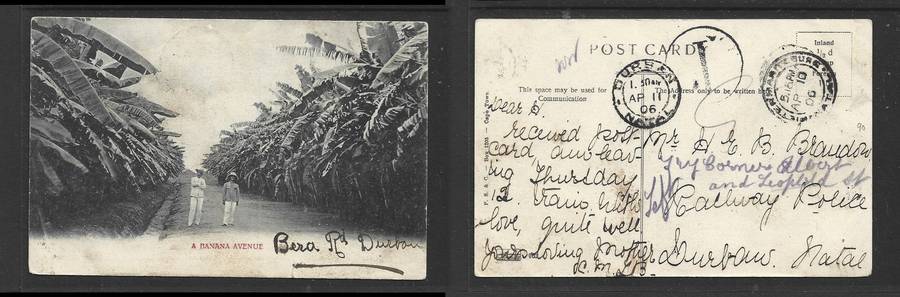 A BANANA AVENUE
Berea Rd Durban
POST CARD
This space may be used for
Communication
The Address only to be written
Inland
½d
DURBAN
1.30AM
AP 11
06
NATAL
AP 10
06
T
Dear
received post
card, am leav
ing Thursday
12 train with
love, quite well
Your loving Mother
Mr H E B Brandon
Try Corner Albert
and Leopold St
Railway Police
Durban. Natal
90